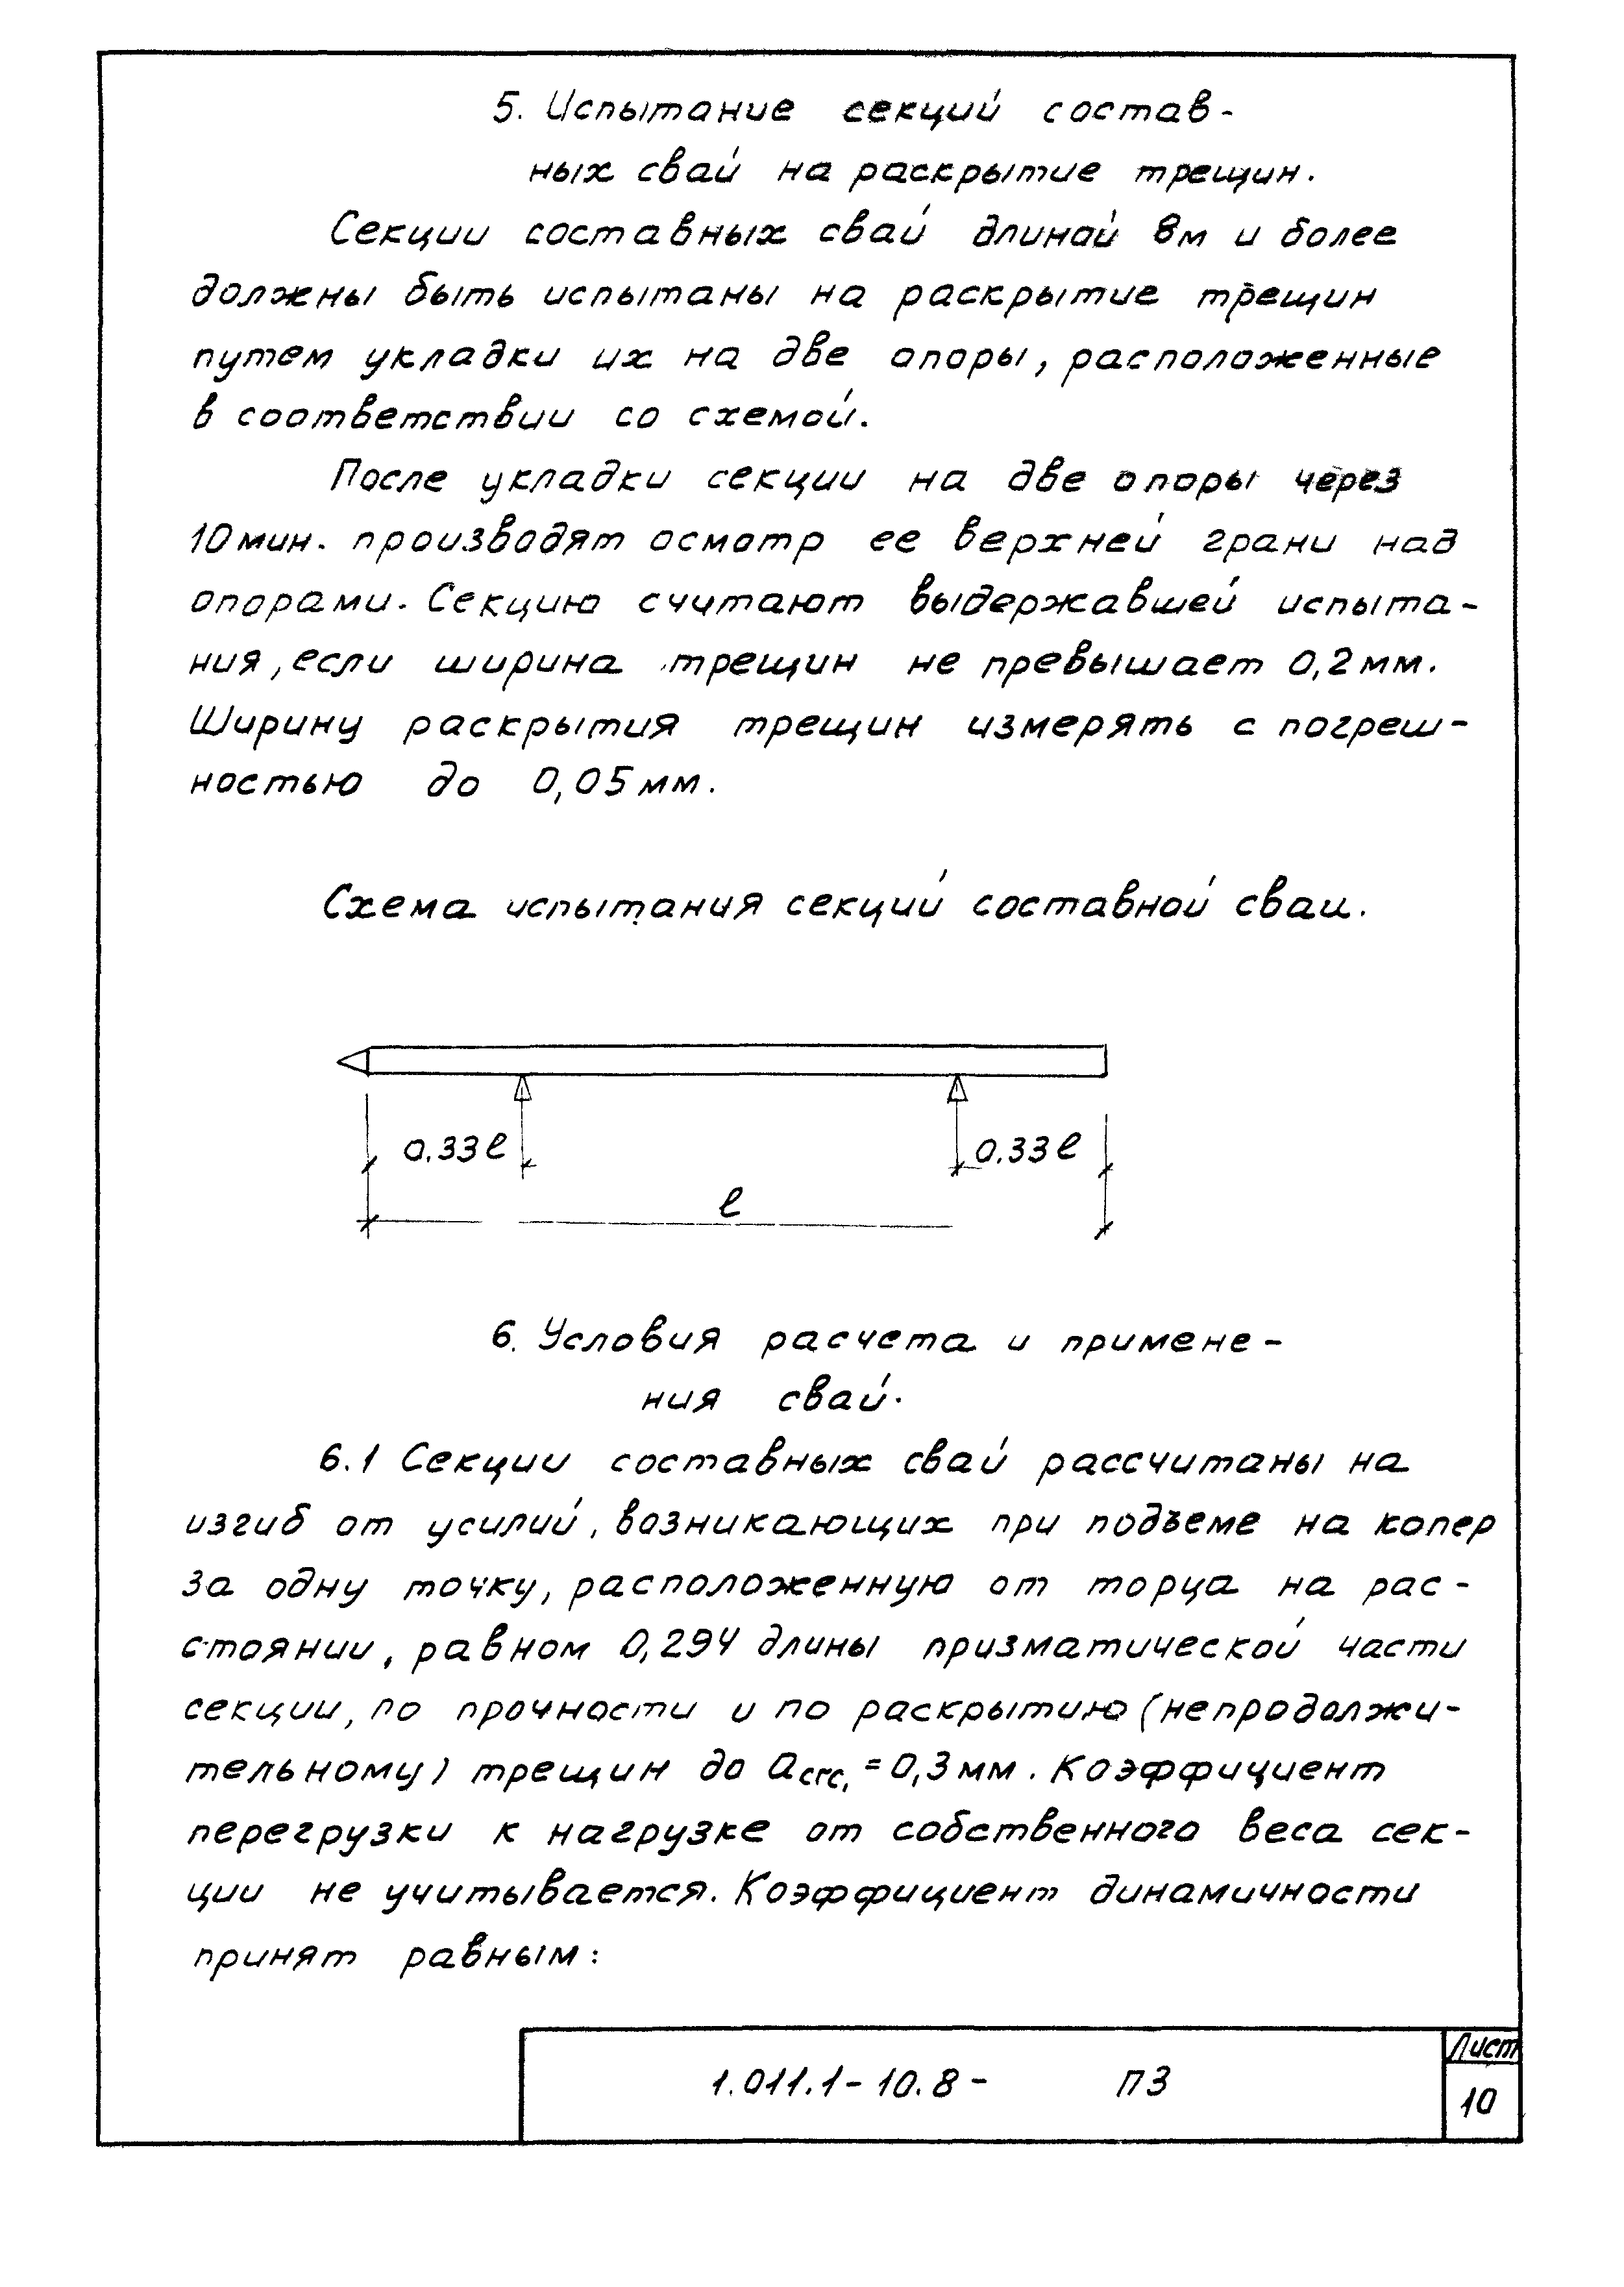 5. Испытание секций состав-
ных свай на раскрытие трещин.
Секции составных свай длиной 8м и более
должны быть испытаны на раскрытие трещин
путем укладки их на две опоры, расположенные
в соответствии со схемой.
После укладки секции на две опоры через
10мин. производят осмотр ее верхней грани над
опорами. Секцию считают выдержавшей испыта-
ния, если ширина трещин не превышает 0,2мм.
Ширину раскрытия трещин измерять с погреш-
ностью до 0,05мм.
Схема испытания секций составной сваи.
0.33ℓ 0.33ℓ
ℓ
6. Условия расчета и примене-
ния свай.
6.1 Секции составных свай рассчитаны на
изгиб от усилий, возникающих при подъеме на копер
за одну точку, расположенную от торца на рас-
стоянии, равном 0,294 длины призматической части
секции, по прочности и по раскрытию (непродолжи-
тельному) трещин до acrc, = 0,3мм. Коэффициент
перегрузки к нагрузке от собственного веса сек-
ции не учитывается. Коэффициент динамичности
принят равным:
1.011.1-10.8- ПЗ
Лист
10